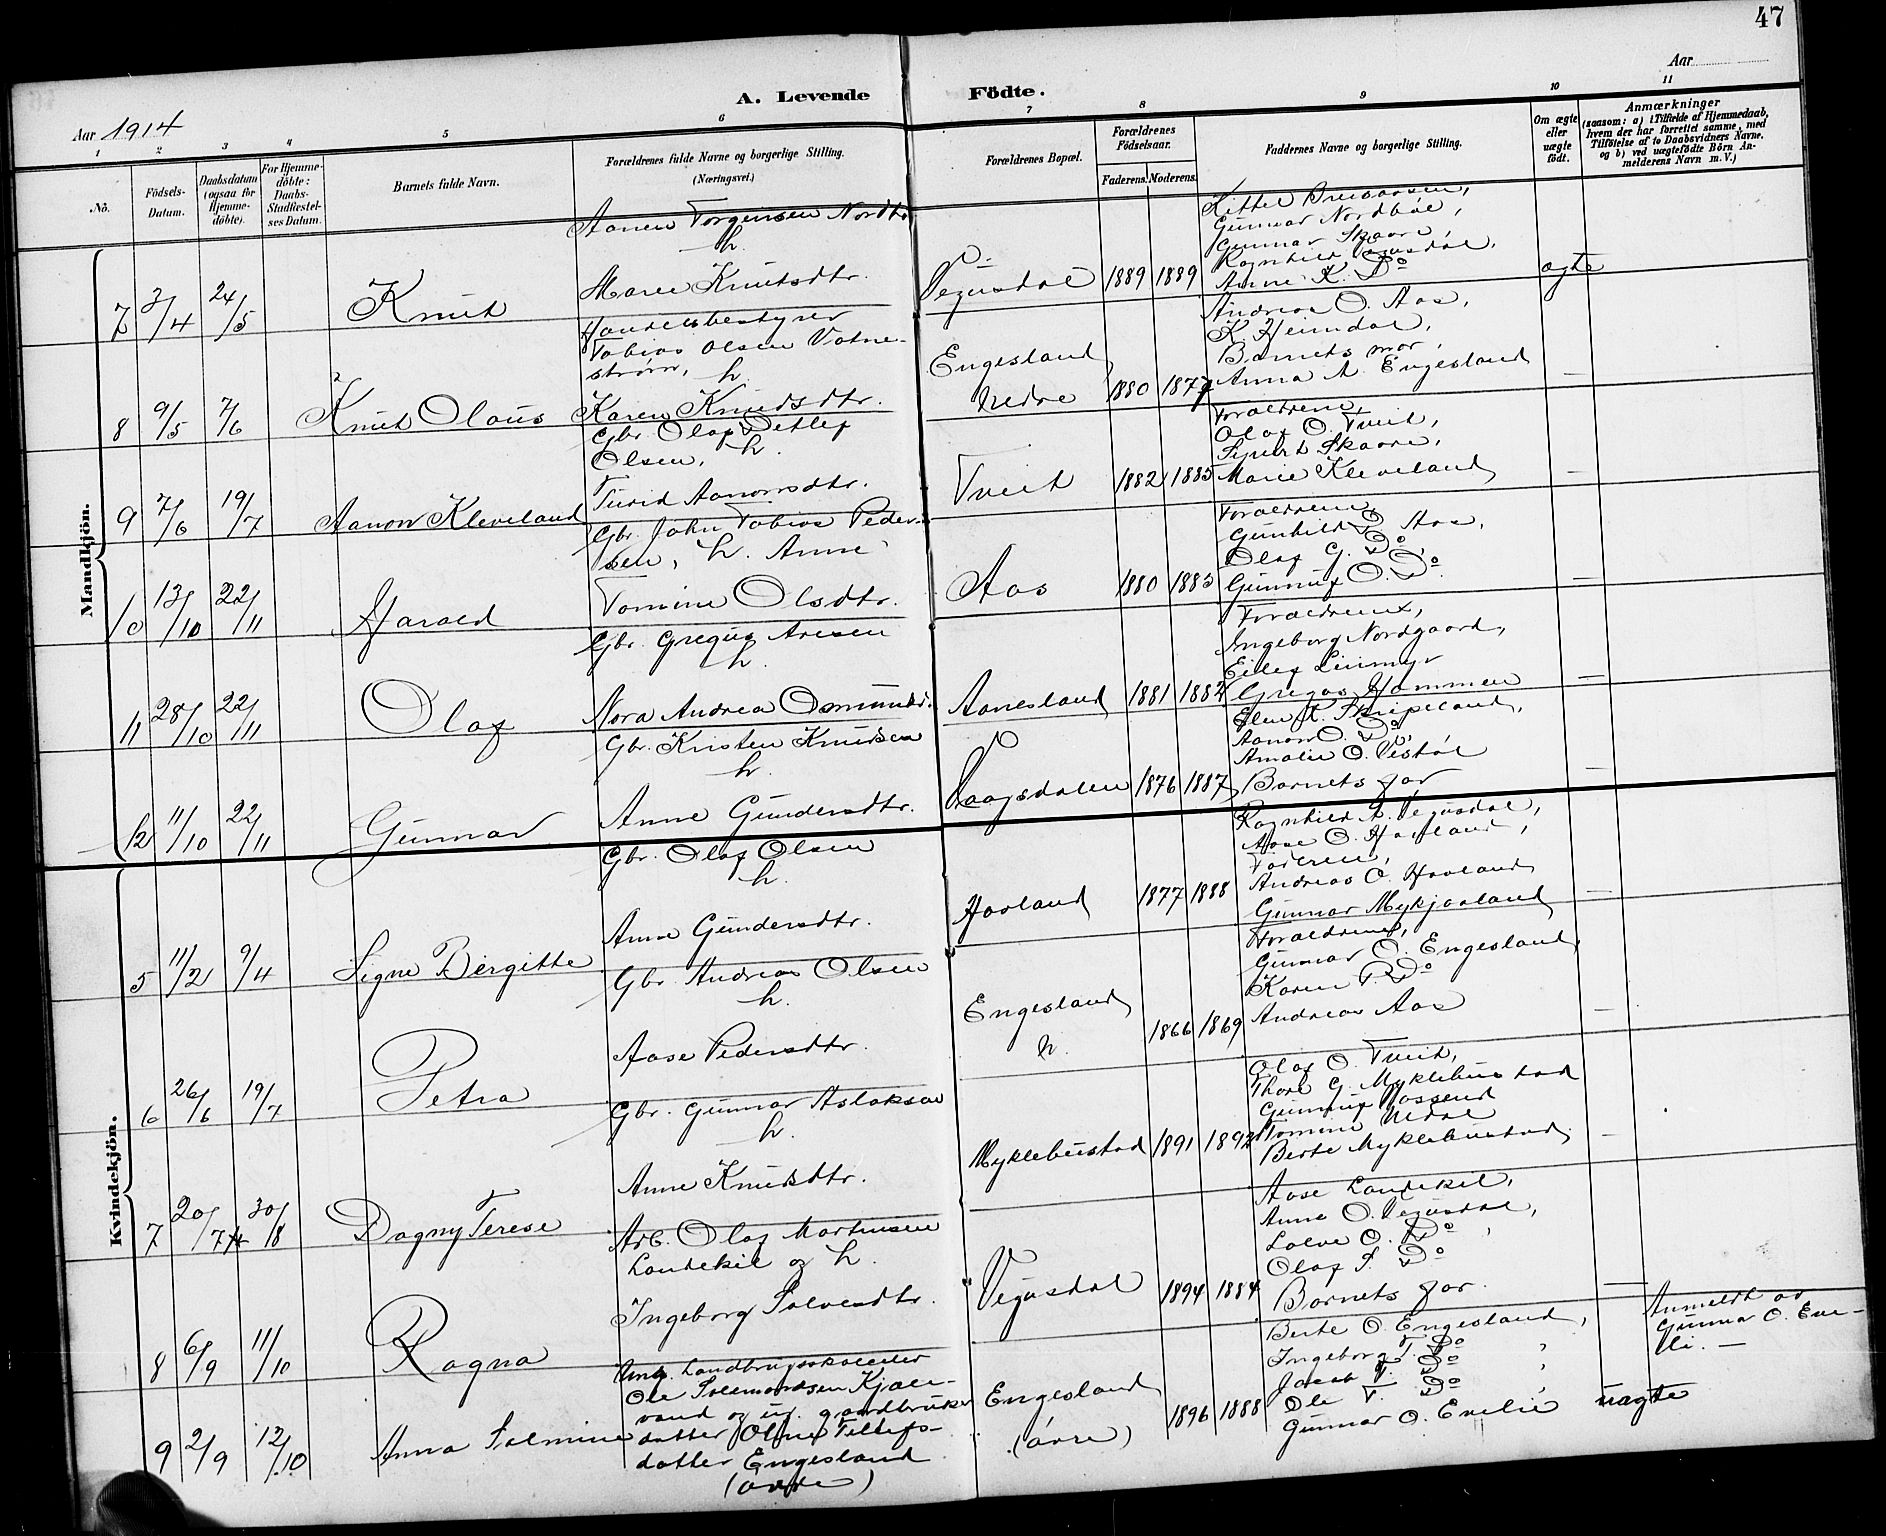 47
A. Levende Födte.
Aar 1914
Aar
1 2 3 4 5 6 7 8 9 10 11
No.
Födsels-Datum.
Daabsdatum (ogsaa for Hjemmedöbte).
For Hjemmedöbte: Daabs-Stadfæstelses Datum.
Barnets fulde Navn.
Forældrenes fulde Navne og borgerlige Stilling.
(Næringsvei.)
Forældrenes Bopæl.
Forældrenes Födselsaar.
Faderens. Moderens.
Faddernes Navne og borgerlige Stilling.
Om ægte eller uægte födt.
Anmærkninger
(saasom: a) i Tilfælde af Hjemmedaab, hvem der har forrettet samme, med Tilföielse af to Daabsvidners Navne. og b) ved uægtefödte Börn Anmelderens Navn m. V.)
Mandkjön.
7 3/4 24/5 Knut
Aanen Torgensen
h.
Maren Knutsdtr.
Vegusdal 1889 1889
Gunnar Nordbøe,
Gunnar Skaare,
Ragnhild Vegusdal,
Anne K. Do
ægte
8 9/5 7/6 Knut Olaus
Handelsbestyrer
Tobias Olsen Vatne-
strøm, h.
Karen Knudsdtr.
Engesland
nedre 1880 1877
Andreas O. Aas,
K. Heimdal,
Barnets mor,
Anna A. Engesland
—
9 7/6 19/7 Aanon Kleveland
Gbr. Olaf Detlef
Olsen, h.
Turid Aanonsdtr.
Tveit 1882 1885
Forældrene,
Olaf O. Tveit,
Sigurd Skaare,
Marie Kleveland
—
10 13/10 22/11 Harald
Gbr. John Tobias Peder-
sen, h. Anne
Tomine Olsdtr.
Aas 1880 1883
Forældrene,
Gunhild T. Aas,
Olaf G. Do,
Gunnuf O. Do.
—
11 28/10 22/11 Olaf
Gbr. Gregus Aresen
h.
Nora Andrea Osmundsd.
Aanesland 1881 1882
Forældrene,
Ingeborg Nordgaard,
Eilef Liimyr
Gregus Hammen
—
12 11/10 22/11 Gunnar
Gbr. Kristen Knudsen
h.
Anne Gundersdtr.
Vaagsdalen 1876 1887
Aanon O. Do,
Amalie O. Vestøl
Barnets far
—
Kvindekjön.
5 11/2 9/4 Signe Birgitte
Gbr. Olaf Olsen
h.
Anne Gundersdtr.
Hovland 1877 1888
Ragnhild A. Vegusdal,
Aase O. Hovland,
Faderen,
Andreas O. Hovland
Gunnar Mykjaaland
—
6 26/6 19/7 Petra
Gbr. Andreas Olsen
h.
Aase Pedersdtr.
Engesland
n. 1866 1869
Forældrene,
Gunnar O. Engesland,
Karen P. Do
Andreas Aas
—
7 20/7 30/8 Dagny Terese
Gbr. Gunnar Aslaksen
h.
Anne Knudsdtr.
Myklebustad 1891 1892
Olaf O. Tveit,
Thore G. Myklebustad
Gunnuf Fossend
Tomine Udal
Berte Myklebustad
—
8 6/9 11/10 Ragna
Arb. Olaf Martinsen
Landekil og h.
Ingeborg Salvesdtr.
Vegusdal 1894 1884
Aase Landekil,
Anne O. Vegusdal,
Salve O. Do,
Olaf S. Do
Barnets far.
—
9 2/9 12/10 Anna Salmine
Ung. Landbrugskoleelev
Ole Salemonsen Kjæle-
vand og ug. gaardbruker
datter Oline Tellefs-
datter Engesland
(øvre)
Engesland
(øvre) 1896 1888
Berte O. Engesland,
Ingeborg T. Do,
Jacob T. Do,
Ole T. Do,
Gunnar O. Evelie
uægte
Anmeldt av
Gunnar O. Eve-
lie. —